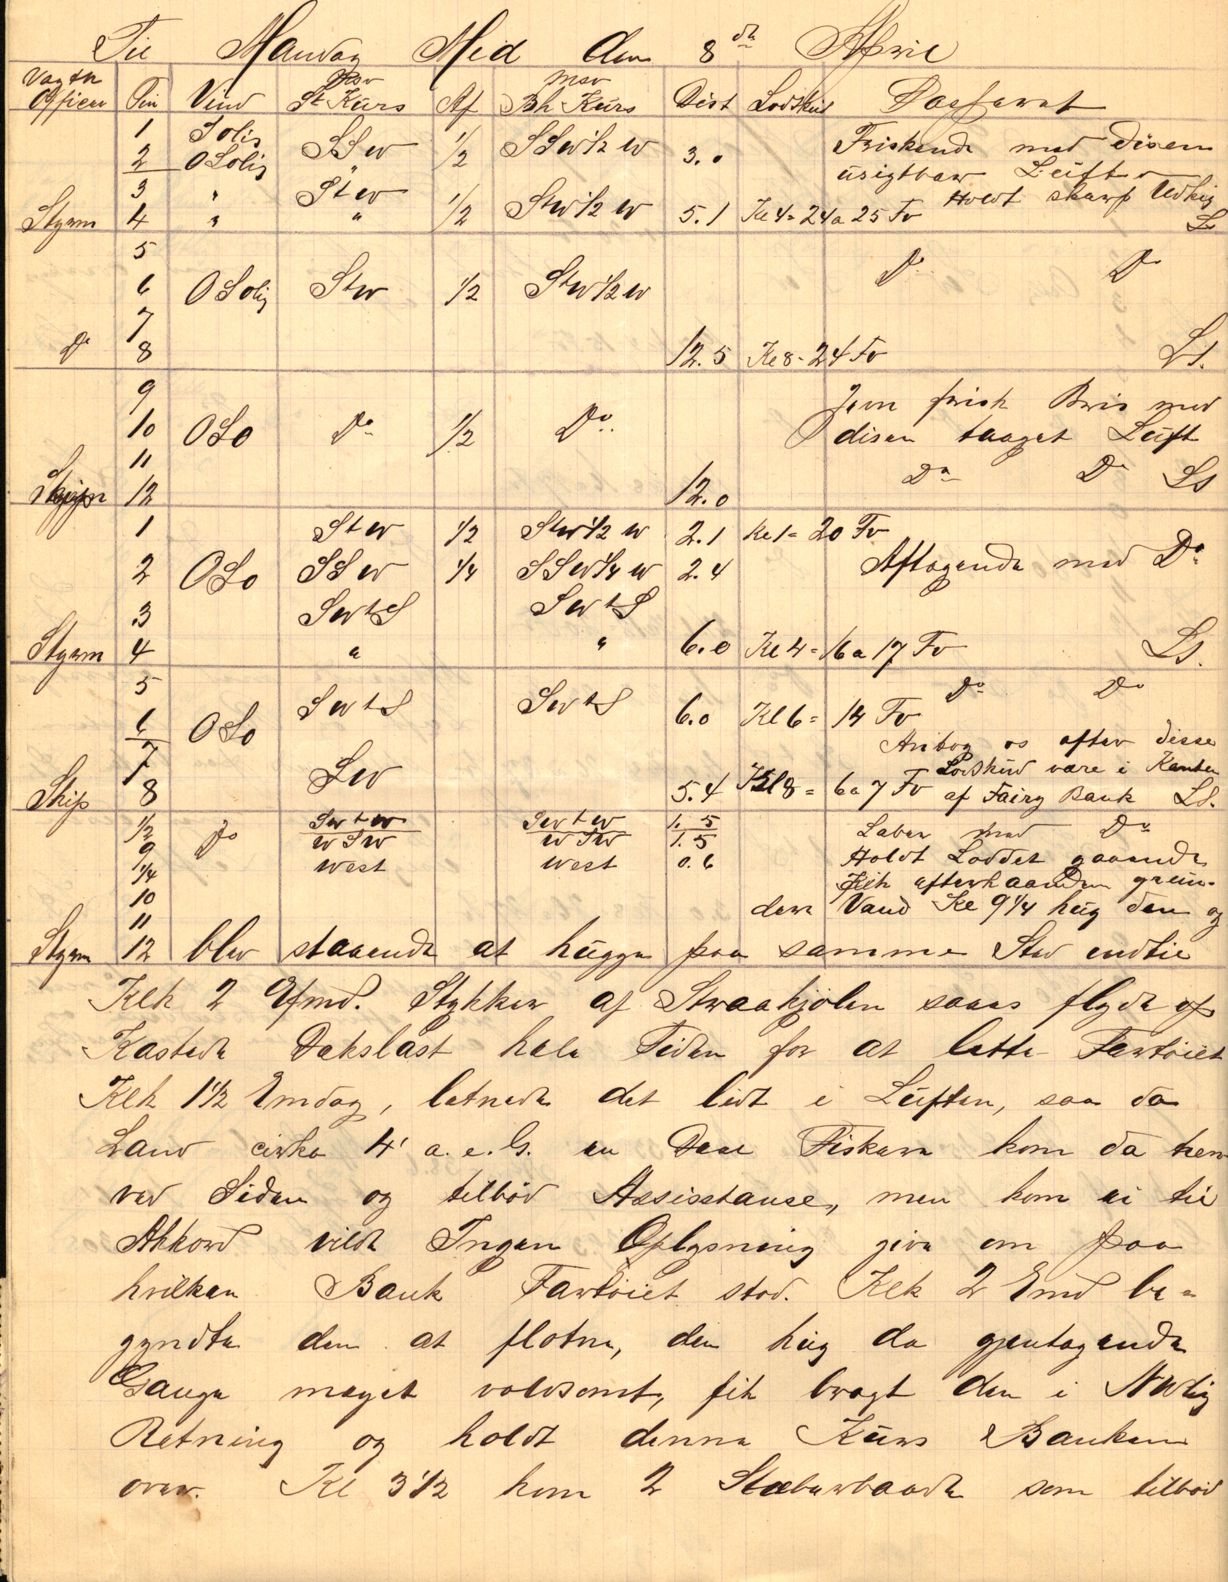 Til Mandag Mid den 8de April
Vagth. Officer Tim Vind msv St Kurs Af msv Bh Kurs Dist Lodskud Passerat
1 Solig
2 OSolig SSw 1/2 SSw 1/2 w 3.0 Friskende med disen
usigtbar Luft
3 " Stw Holdt skarp Udkig
Styrm 4 " " 1/2 Stw 1/2 w 5.1 Kl 4 = 24 a 25 Fv Ls
5
6 OSolig Stw 1/2 Stw 1/2 w Do Do
7
Do 8 12.5 Kl 8 - 24 Fv Ls.
9 Jevn frisk Bris med
10 OSo Do 1/2 Do disen taaget Luft
11 Do Do Ls
Skipp 12 12.0
1 Stw 1/2 Stw 1/2 w 2.1 Kl 1 = 20 Fv
2 OSo SSw 1/4 SSw 1/4 w 2.4 Aftagende med Do
3 SwtS SwtS
Styrm 4 " " 6.0 Kl 4 = 16 a 17 Fv Ls.
5 Do Do
6 OSo SwtS SwtS 6.0 Kl 6 = 14 Fv
Antog os efter disse
7 Sw Lodskud være i Kanten
Skip 8 5.4 Kl 8 = 6 a 7 Fv af Fairy Bank Ls.
1/2 Do Swtw Swtw 1.5 Laber med Do
9 wSw wSw 1.5
1/4 west west 0.6 Holdt Loddet gaaende
Fik efterhaanden grun-
10 dere Vand Kl 9 1/4 hug den og
11
Styrm 12 blev staaende at hugge paa samme Sted indtil
Klk 2 Efmd. Stykker af Straakjølen saaes flyde op
Kastede Dakslast hele Tiden for at lette Fartøiet
Klk 1 1/2 Emdag, letnede det lidt i Luften, saa da
Land cirka 4' a. e. G. en Deel Fiskere kom da hen
ved Siden og tilbød Assisstanse, men kom ei til
Akkord vilde Ingen Oplysning give om paa
hvilken Bank Fartøiet stod. Klk 2 Emd be-
gyndte den at flotne, den hug da gjentagende
Gange meget voldsomt, fik bragt den i NWlig
Retning og holdt denne Kurs Banken
over. Kl 3 1/2 kom 2 Slæberbaade som tilbød